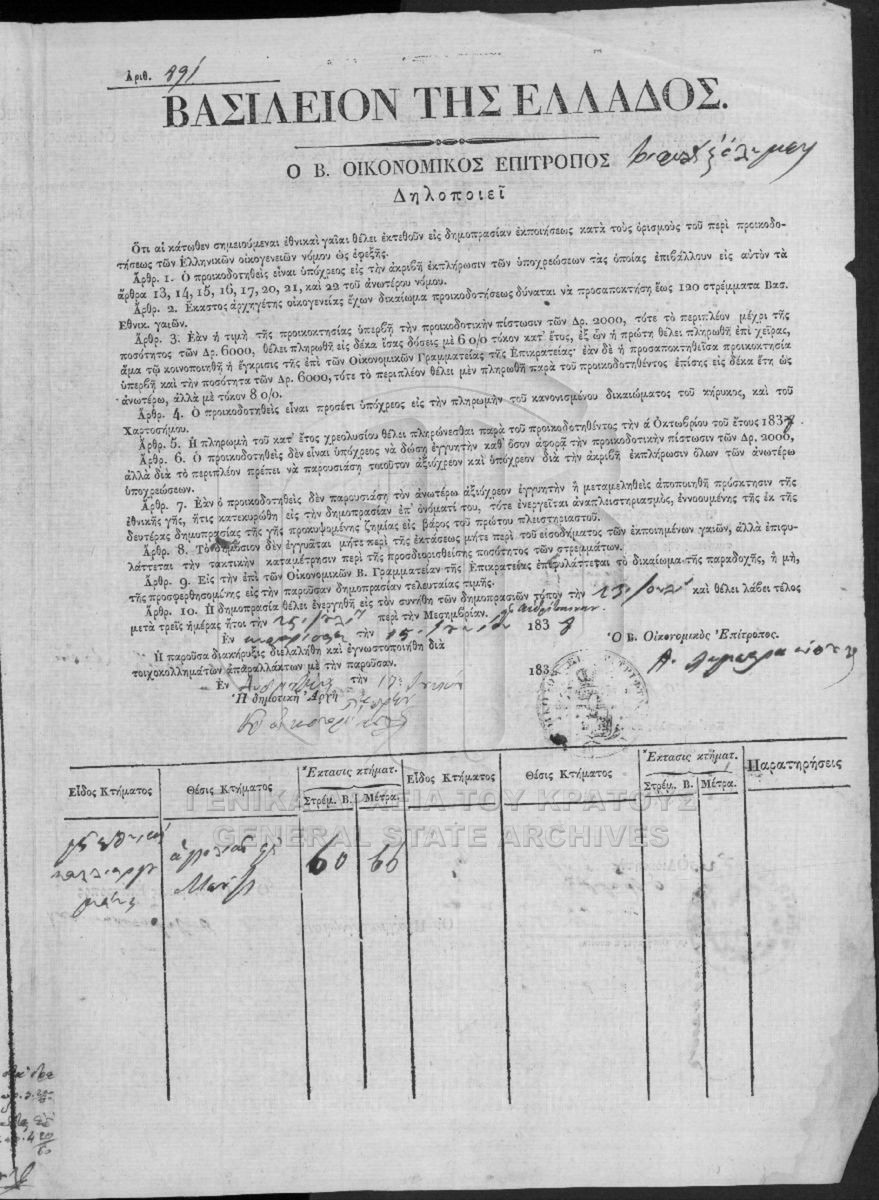 Ἀριθ. 491
ΒΑΣΙΛΕΙΟΝ ΤΗΣ ΕΛΛΑΔΟΣ.
Ο Β. ΟΙΚΟΝΟΜΙΚΟΣ ΕΠΙΤΡΟΠΟΣ
Δηλοποιεῖ
Ὅτι αἱ κάτωθεν σημειούμεναι ἐθνικαὶ γαῖαι θέλει ἐκτεθοῦν εἰς δημοπρασίαν ἐκποιήσεως κατὰ τοὺς ὁρισμοὺς τοῦ περὶ προικοδο-
τήσεως τῶν Ἑλληνικῶν οἰκογενειῶν νόμου ὡς ἐφεξῆς.
Ἄρθρ. 1. Ὁ προικοδοτηθεὶς εἶναι ὑπόχρεος εἰς τὴν ἀκριβῆ ἐκπλήρωσιν τῶν ὑποχρεώσεων τὰς ὁποίας ἐπιβάλλουν εἰς αὐτὸν τὰ
ἄρθρα 13, 14, 15, 16, 17, 20, 21, καὶ 22 τοῦ ἀνωτέρω νόμου.
Ἄρθρ. 2. Ἕκαστος ἀρχηγέτης οἰκογενείας ἔχων δικαίωμα προικοδοτήσεως δύναται νὰ προσαποκτήσῃ ἕως 120 στρέμματα Βασ.
Ἐθνικ. γαιῶν.
Ἄρθρ. 3. Ἐὰν ἡ τιμὴ τῆς προικοκτησίας ὑπερβῇ τὴν προικοδοτικὴν πίστωσιν τῶν Δρ. 2000, τότε τὸ περιπλέον μέχρι τῆς
ποσότητος τῶν Δρ. 6000, θέλει πληρωθῆ εἰς δέκα ἴσας δόσεις μὲ 6 0/0 τόκον κατ' ἔτος, ἐξ ὧν ἡ πρώτη θέλει πληρωθῆ ἐπὶ χεῖρας,
ἅμα τῷ κοινοποιηθῇ ἡ ἔγκρισις τῆς ἐπὶ τῶν Οἰκονομικῶν Γραμματείας τῆς Ἐπικρατείας· ἐὰν δὲ ἡ προσαποκτηθεῖσα προικοκτησία
ὑπερβῇ καὶ τὴν ποσότητα τῶν Δρ. 6000, τότε τὸ περιπλέον θέλει μὲν πληρωθῆ παρὰ τοῦ προικοδοτηθέντος ἐπίσης εἰς δέκα ἔτη ὡς
ἀνωτέρω, ἀλλὰ μὲ τόκον 8 0/0.
Ἄρθρ. 4. Ὁ προικοδοτηθεὶς εἶναι προσέτι ὑπόχρεος εἰς τὴν πληρωμὴν τοῦ κανονισμένου δικαιώματος τοῦ κήρυκος, καὶ τοῦ
Χαρτοσήμου.
Ἄρθρ. 5. Ἡ πληρωμὴ τοῦ κατ' ἔτος χρεολυσίου θέλει πληρώνεσθαι παρὰ τοῦ προικοδοτηθέντος τὴν ά Ὀκτωβρίου τοῦ ἔτους 1838
Ἄρθρ. 6. Ὁ προικοδοτηθεὶς δὲν εἶναι ὑπόχρεος νὰ δώσῃ ἐγγυητὴν καθ' ὅσον ἀφορᾷ τὴν προικοδοτικὴν πίστωσιν τῶν Δρ. 2000,
ἀλλὰ διὰ τὸ περιπλέον πρέπει νὰ παρουσιάσῃ τοιοῦτον ἀξιόχρεον καὶ ὑπόχρεον διὰ τὴν ἀκριβῆ ἐκπλήρωσιν ὅλων τῶν ἀνωτέρω
ὑποχρεώσεων.
Ἄρθρ. 7. Ἐὰν ὁ προικοδοτηθεὶς δὲν παρουσιάσῃ τὸν ἀνωτέρω ἀξιόχρεον ἐγγυητὴν ἢ μεταμεληθεὶς ἀποποιηθῇ πρόσκτησιν τῆς
ἐθνικῆς γῆς, ἥτις κατεκυρώθη εἰς τὴν δημοπρασίαν ἐπ' ὀνόματί του, τότε ἐνεργεῖται ἀναπλειστηριασμὸς, ἐννοουμένης τῆς ἐκ τῆς
δευτέρας δημοπρασίας τῆς γῆς προκυψομένης ζημίας εἰς βάρος τοῦ πρώτου πλειστηριαστοῦ.
Ἄρθρ. 8. Τὸ δημόσιον δὲν ἐγγυᾶται μήτε περὶ τῆς ἐκτάσεως μήτε περὶ τοῦ εἰσοδήματος τῶν ἐκποιημένων γαιῶν, ἀλλὰ ἐπιφυ-
λάττεται τὴν τακτικὴν καταμέτρησιν περὶ τῆς προσδιορισθείσης ποσότητος τῶν στρεμμάτων.
Ἄρθρ. 9. Εἰς τὴν ἐπὶ τῶν Οἰκονομικῶν Β. Γραμματείαν τῆς Ἐπικρατείας ἐπιφυλάττεται τὸ δικαίωμα τῆς παραδοχῆς, ἢ μὴ,
τῆς προσφερθησομένης εἰς τὴν παροῦσαν δημοπρασίαν τελευταίας τιμῆς.
Ἄρθρ. 10. Ἡ δημοπρασία θέλει ἐνεργηθῇ εἰς τὸν συνήθη τῶν δημοπρασιῶν τόπον τὴν καὶ θέλει λάβει τέλος
μετὰ τρεῖς ἡμέρας ἤτοι τὴν περὶ τὴν Μεσημβρίαν.
Ἐν τὴν 15 1838
Ὁ Β. Οἰκονομικὸς Ἐπίτροπος.
Ἡ παροῦσα διακήρυξις διελαλήθη καὶ ἐγνωστοποιήθη διὰ
τοιχοκολλημάτων ἀπαραλλάκτων μὲ τὴν παροῦσαν.
Ἐν τὴν 17 183
Ἡ δημοτικὴ Ἀρχὴ
Εἶδος Κτήματος Θέσις Κτήματος Ἔκτασις κτήματ. Στρέμ. Β. Μέτρα. Εἶδος Κτήματος Θέσις Κτήματος Ἔκτασις κτήματ. Στρέμ. Β. Μέτρα. Παρατηρήσεις
60 66
ΓΕΝΙΚΑ ΑΡΧΕΙΑ ΤΟΥ ΚΡΑΤΟΥΣ
GENERAL STATE ARCHIVES